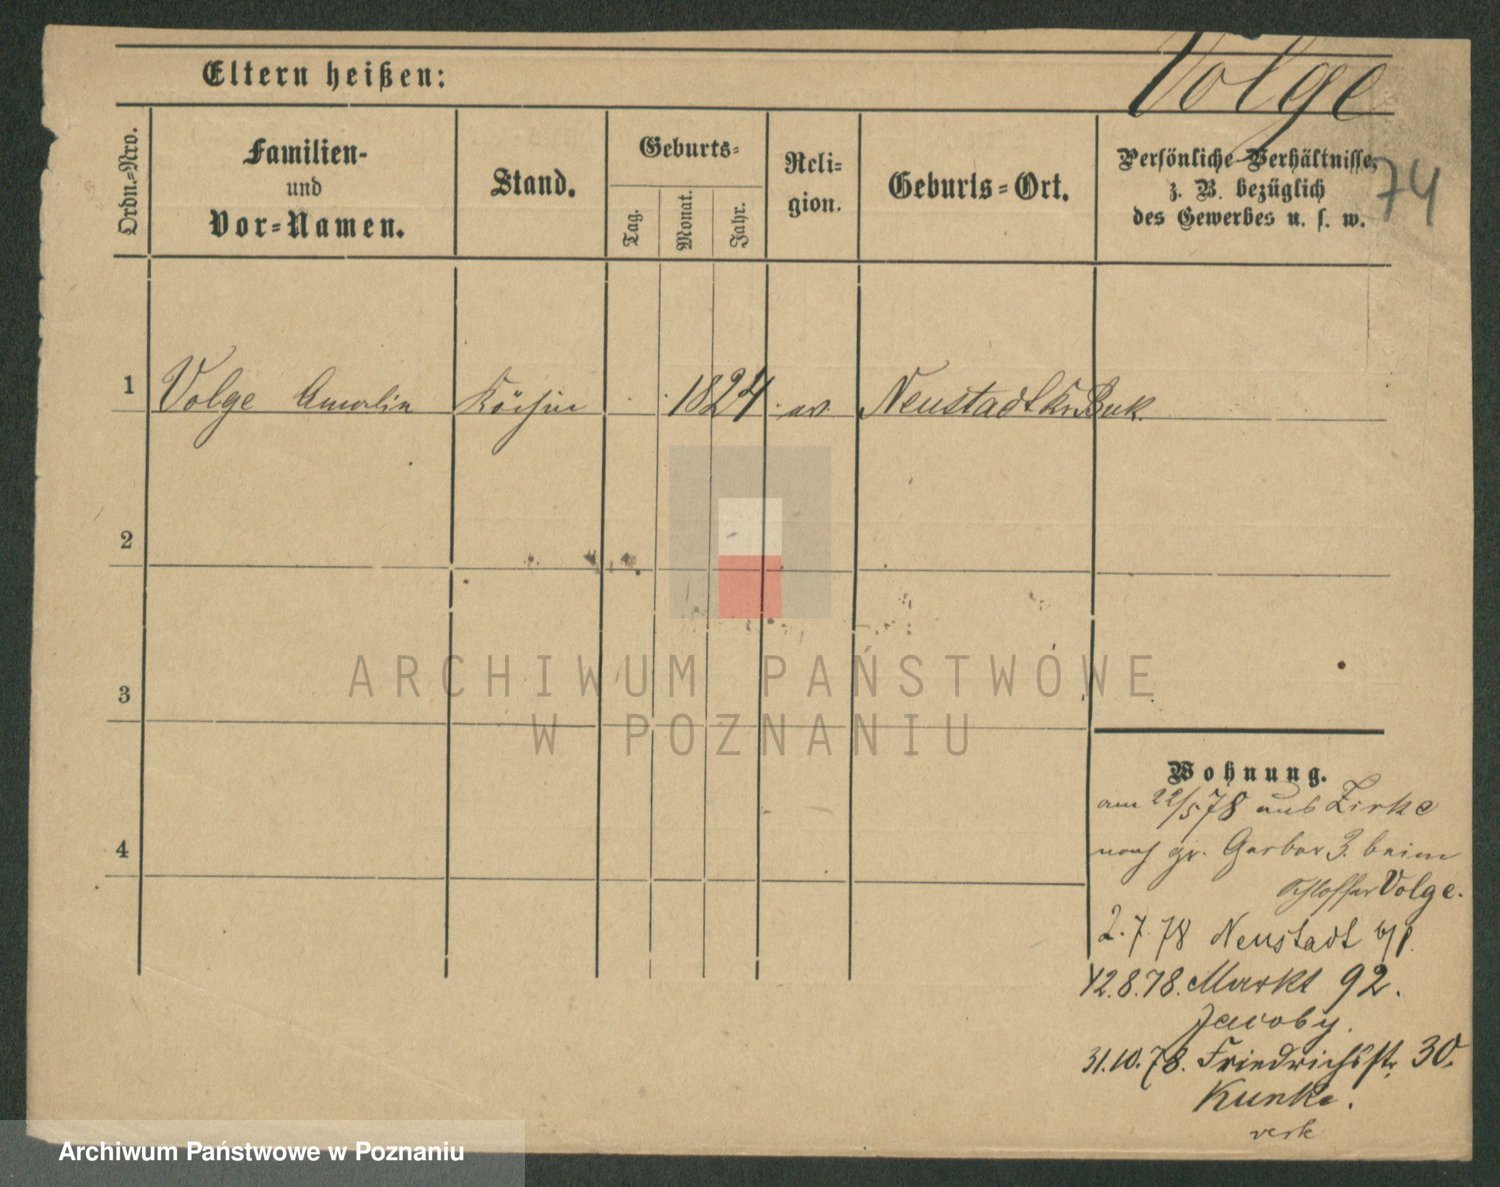 Volge
Eltern heißen:
Ordn.-Nro.
Familien-
und
Vor-Namen.
Stand.
Geburts-
Tag.
Monat.
Jahr.
Reli-
gion.
Geburts-Ort.
Persönliche Verhältnisse,
z. B. bezüglich
des Gewerbes u. s. w.
74
1 Volge Amalie Köchin 1824 ev. Neustadt Kr. Buk.
2
3
4
ARCHIWUM PAŃSTWOWE
W POZNANIU
Wohnung.
am 22/5 78 aus Zirke
nach gr. Gerber 3. beim
Schlosser Volge.
2.7.78 Neustadt b/P.
12.8.78. Markt 92.
Jacoby.
31.10.78. Friedrichsstr. 30.
Kunke.
Archiwum Państwowe w Poznaniu